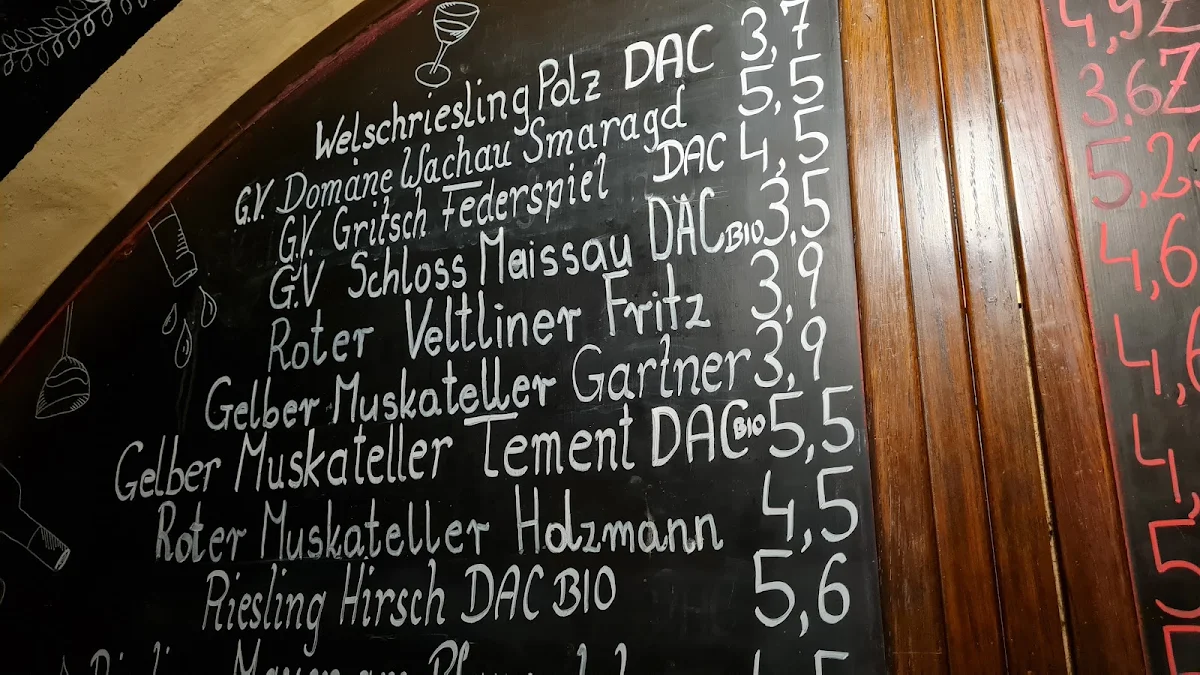 Welschriesling Polz DAC 3,7
G.V. Domäne Wachau Smaragd 5,5
G.V. Gritsch Federspiel DAC 4,5
G.V Schloss Maissau DAC BIO 3,5
Roter Veltliner Fritz 3,9
Gelber Muskateller Gartner 3,9
Gelber Muskateller Tement DAC BIO 5,5
Roter Muskateller Holzmann 4,5
Riesling Hirsch DAC BIO 5,6